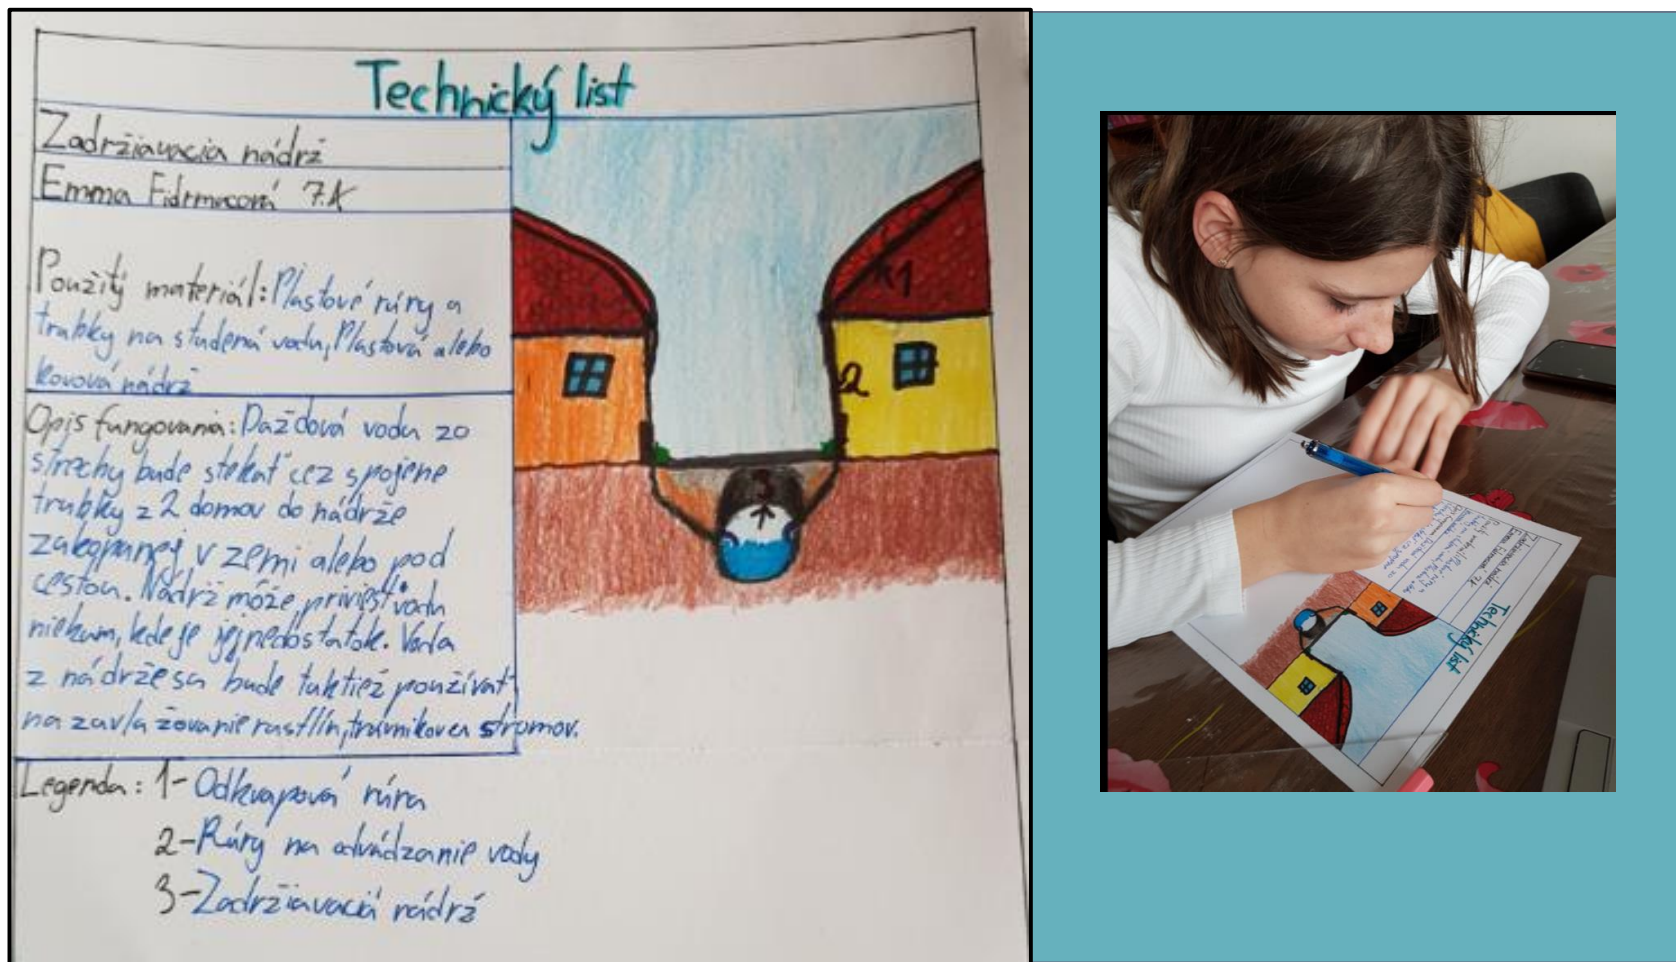 Technický list
Zadržiavacia nádrž
Emma Fidrmucová 7.A
Použitý materiál: Plastové rúry a
trubky na studenú vodu, Plastová alebo
kovová nádrž
Opis fungovania: Dažďová voda zo
strechy bude stekať cez spojene
trubky z 2 domov do nádrže
zakopanej v zemi alebo pod
cestou. Nádrž môže priviesť vodu
niekam, kde je jej nedostatok. Voda
z nádrže sa bude taktiež používať
na zavlažovanie rastlín, trávnikov a stromov.
Legenda: 1- Odkvapová rúra
2- Rúry na odvádzanie vody
3- Zadržiavacia nádrž
1
2
3
Technický list